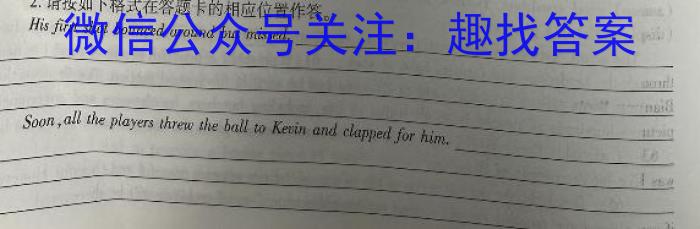 2. 请按如下格式在答题卡的相应位置作答。
His first shot bounced around but missed.
微信公众号关注：趣找答案
Soon, all the players threw the ball to Kevin and clapped for him.